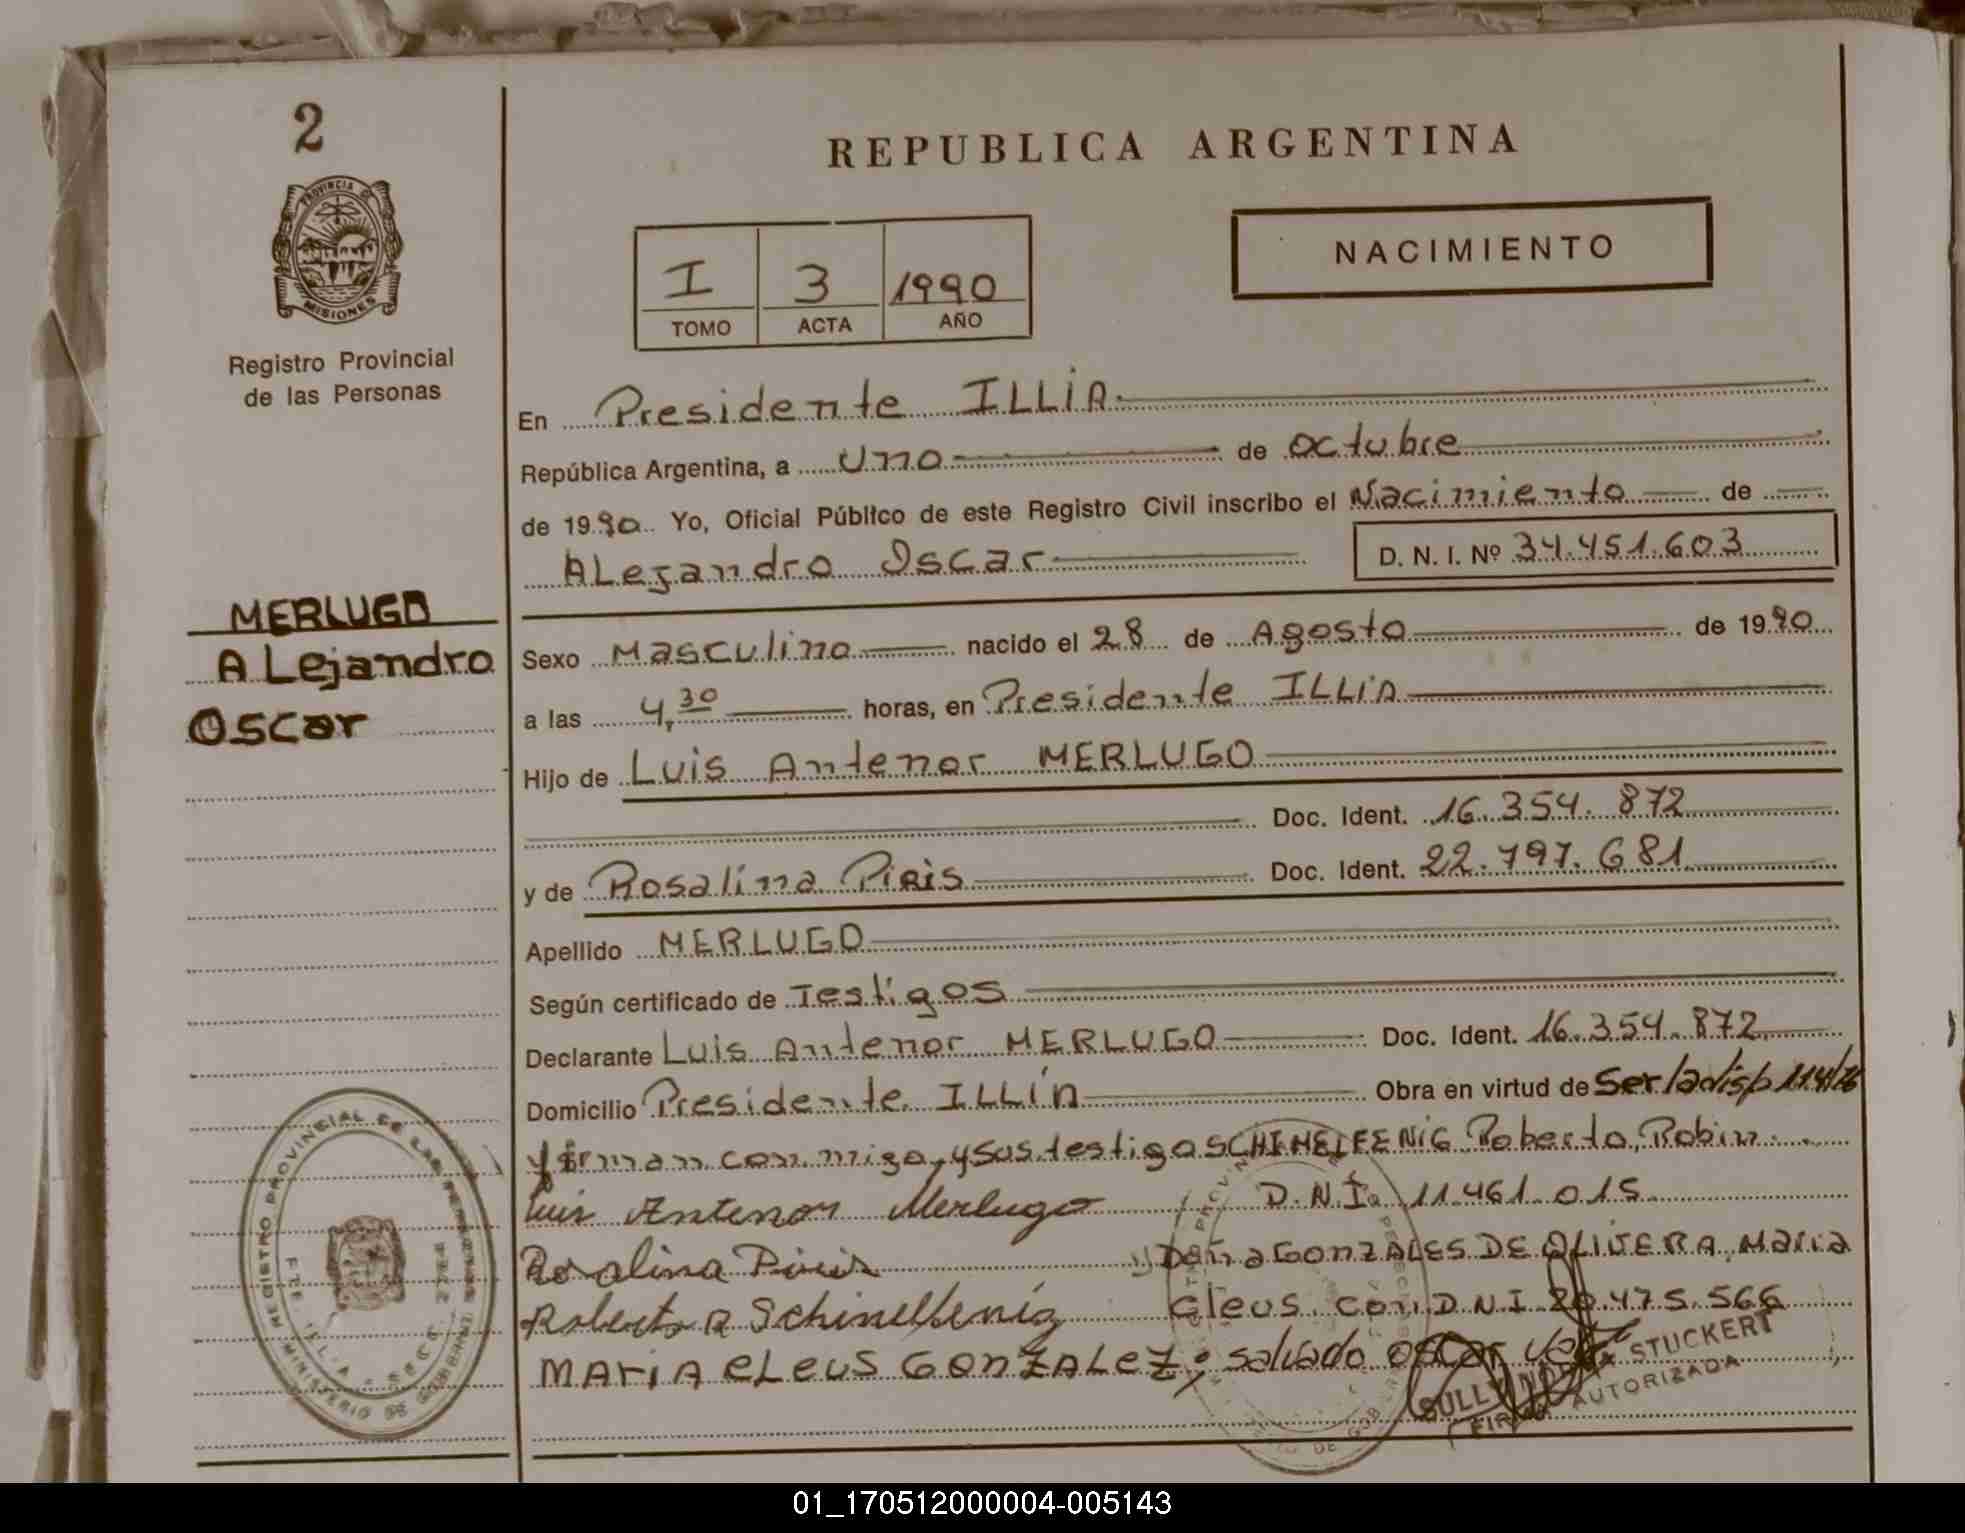 2
PROVINCIA DE
MISIONES
Registro Provincial
de las Personas
MERLUGO
ALejandro
Oscar
REPUBLICA ARGENTINA
I 3 1990
TOMO ACTA AÑO
NACIMIENTO
En Presidente ILLIA
República Argentina, a uno de octubre
de 1990 Yo, Oficial Público de este Registro Civil inscribo el Nacimiento de
ALejandro Oscar D. N. I. Nº 34.451.603
Sexo Masculino nacido el 28 de Agosto de 1990
a las 4,30 horas, en Presidente ILLIA
Hijo de Luis Antenor MERLUGO
Doc. Ident. 16.354.872
y de Rosalina Piris Doc. Ident. 22.797.681
Apellido MERLUGO
Según certificado de Testigos
Declarante Luis Antenor MERLUGO Doc. Ident. 16.354.872
Domicilio Presidente ILLIA Obra en virtud de Ser/ladisp 114/76
y firman conmigo, y sus testigos SCHIMELFENIG Roberto, Robin
Luis Antenor Merlugo D.N.I. 11.461.015
Rosalina Piris y Doña GONZALES DE OLIVERA, Maria
Roberto R Schinelfenig Cleus con D N I 20.475.566
MARIA eLeuS GonZALeZ; salvado oscar vale
STUCKERT
FIRMA AUTORIZADA
01_170512000004-005143